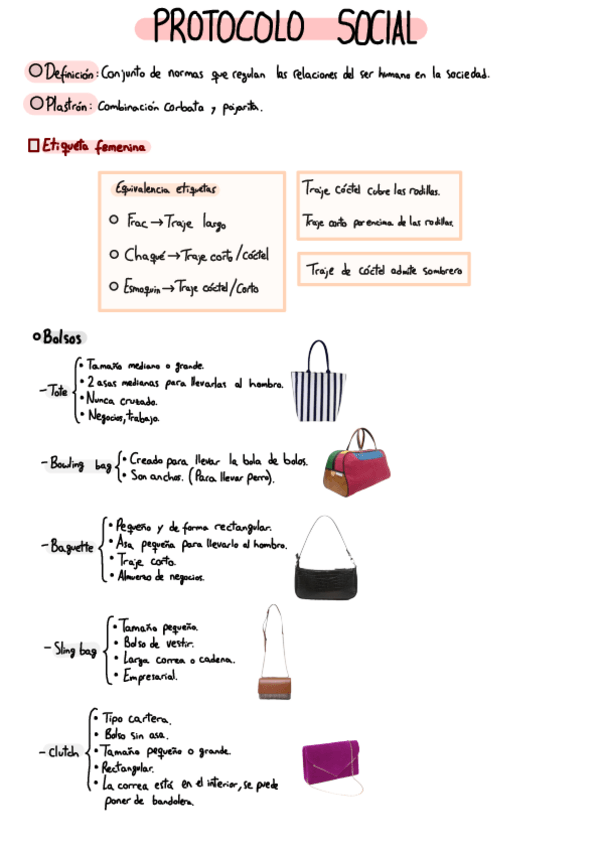 PROTOCOLO SOCIAL
Definición: Conjunto de normas que regulan las relaciones del ser humano en la sociedad.
Plastrón: Combinación corbata y pajarita.
Etiqueta femenina
Equivalencia etiquetas
Frac → Traje largo
Chaqué → Traje corto/cóctel
Esmoquin → Traje cóctel/Corto
Traje cóctel cubre las rodillas.
Traje corto por encima de las rodillas.
Traje de cóctel admite sombrero
Bolsos
- Tote
• Tamaño mediano o grande.
• 2 asas medianas para llevarlas al hombro.
• Nunca cruzado.
• Negocios, trabajo.
- Bowling bag
• Creado para llevar la bola de bolos.
• Son anchos. (Para llevar perro).
- Baguette
• Pequeño y de forma rectangular.
• Asa pequeña para llevarlo al hombro.
• Traje corto.
• Almuerzo de negocios.
- Sling bag
• Tamaño pequeño.
• Bolso de vestir.
• Larga correa o cadena.
• Empresarial.
- Clutch
• Tipo cartera.
• Bolso sin asa.
• Tamaño pequeño o grande.
• Rectangular.
• La correa está en el interior, se puede
poner de bandolera.